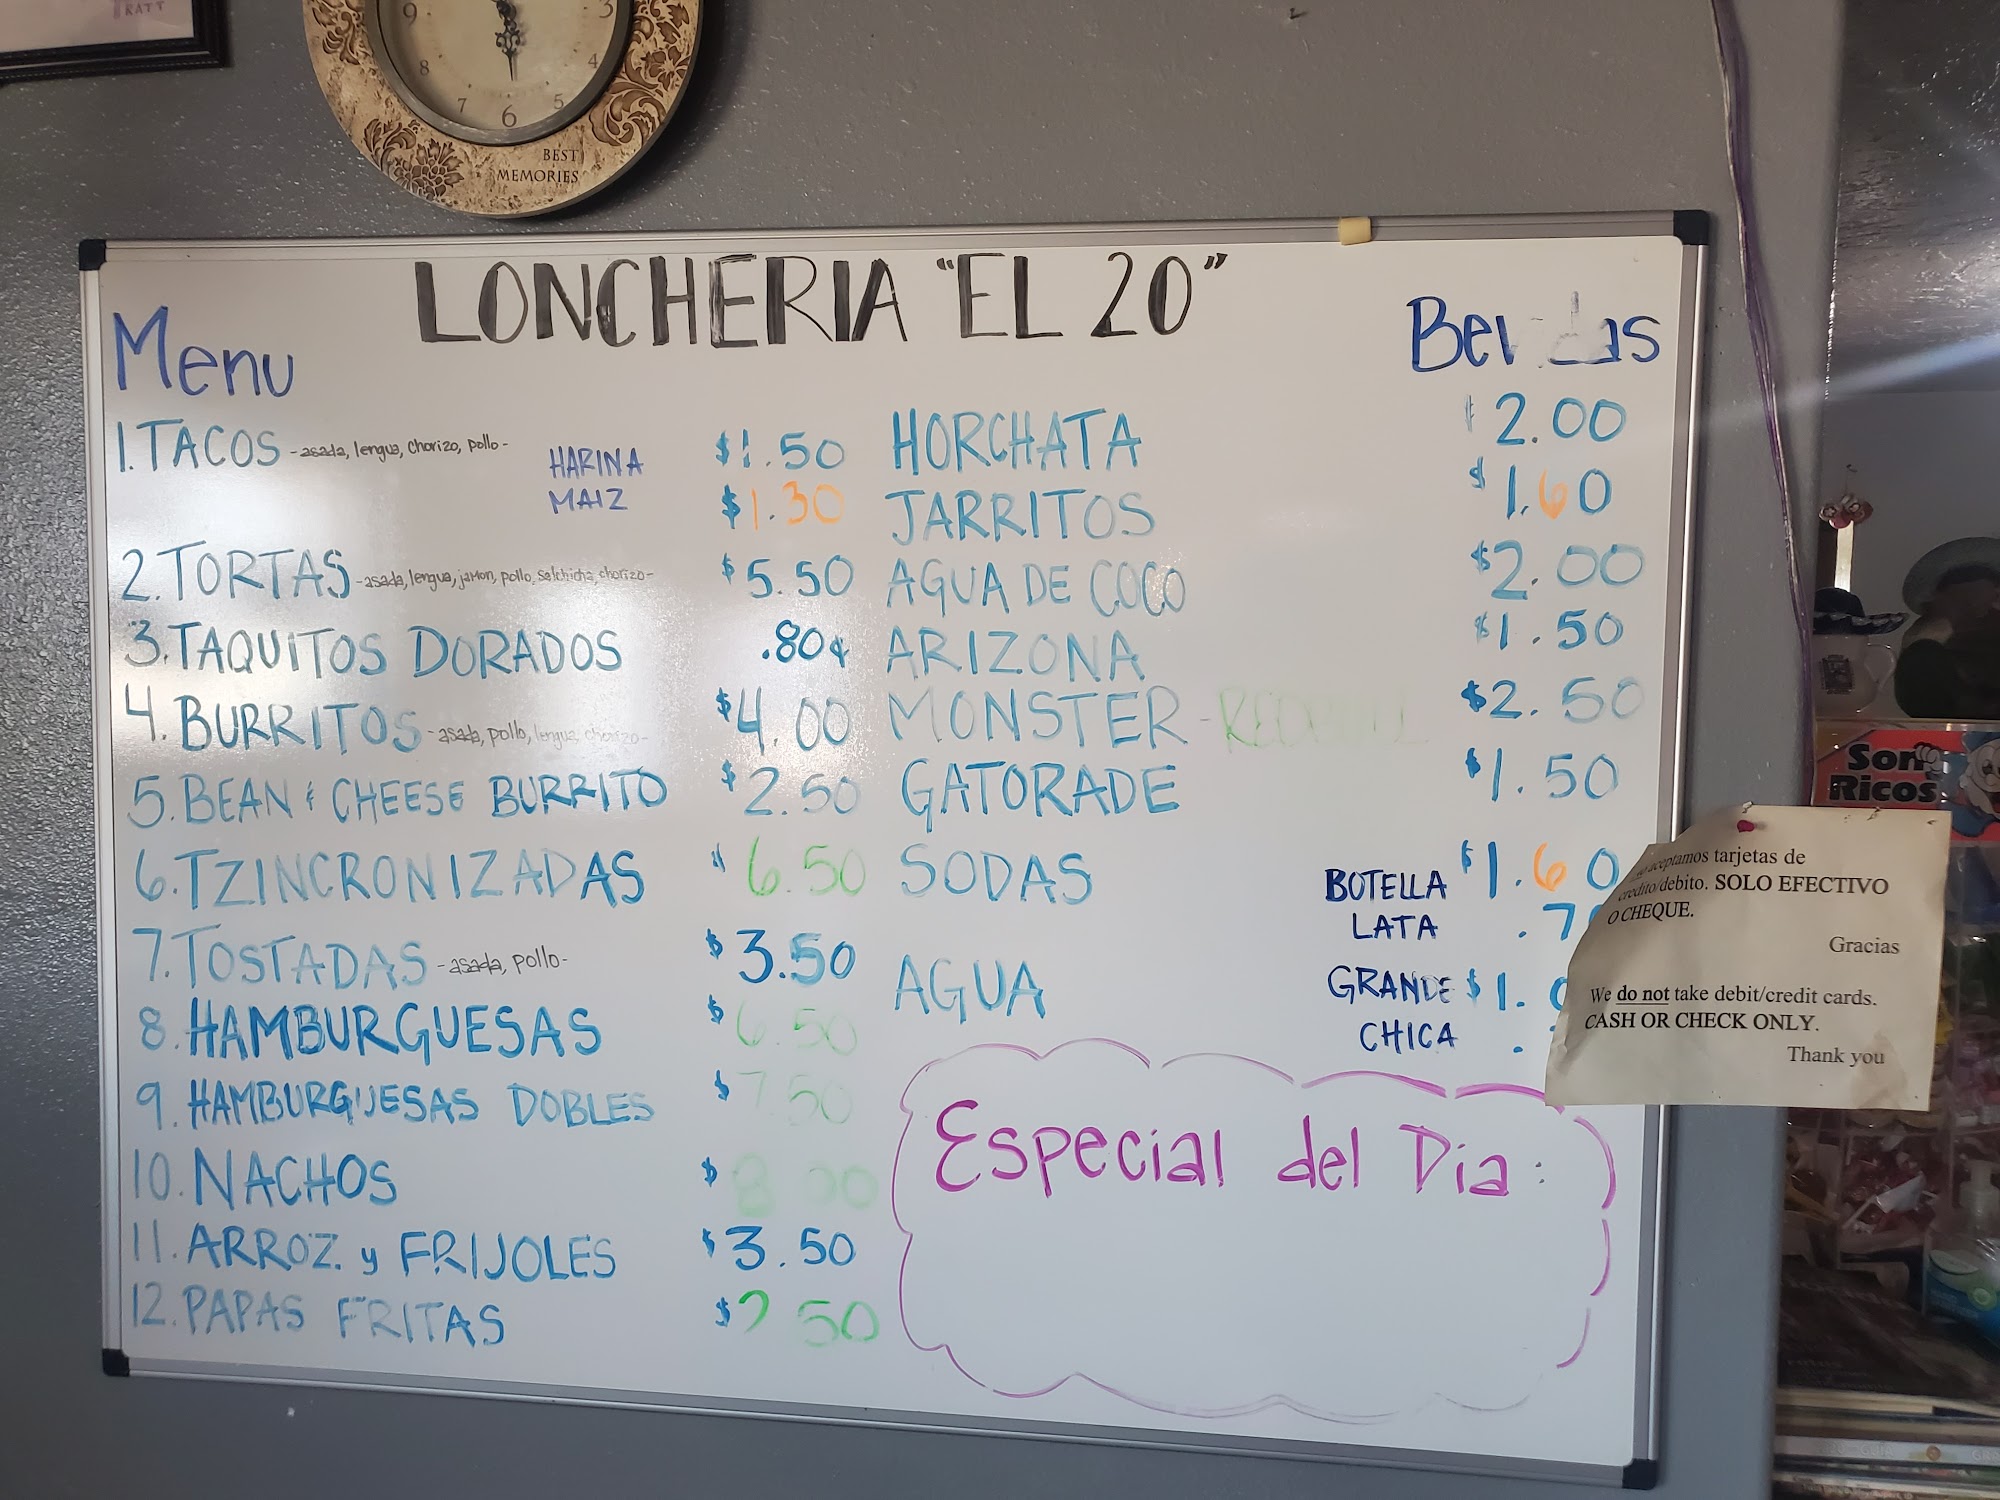 KATT
9
3
8
4
7
5
6
BEST
MEMORIES
LONCHERIA "EL 20"
Menu
1. TACOS -asada, lengua, chorizo, pollo-
HARINA $1.50
MAIZ $1.30
2. TORTAS -asada, lengua, jamon, pollo, salchicha, chorizo- $5.50
3. TAQUITOS DORADOS .80¢
4. BURRITOS -asada, pollo, lengua, chorizo- $4.00
5. BEAN & CHEESE BURRITO $2.50
6. TZINCRONIZADAS $6.50
7. TOSTADAS -asada, pollo- $3.50
8. HAMBURGUESAS $6.50
9. HAMBURGUESAS DOBLES $7.50
10. NACHOS $8.00
11. ARROZ y FRIJOLES $3.50
12. PAPAS FRITAS $2.50
HORCHATA $2.00
JARRITOS $1.60
AGUA DE COCO $2.00
ARIZONA $1.50
MONSTER -REDBULL $2.50
GATORADE $1.50
SODAS BOTELLA $1.60
LATA .7
AGUA GRANDE $1.
CHICA .
Especial del Dia:
aceptamos tarjetas de
credito/debito. SOLO EFECTIVO
O CHEQUE.
Gracias
We do not take debit/credit cards.
CASH OR CHECK ONLY.
Thank you
Son
Ricos